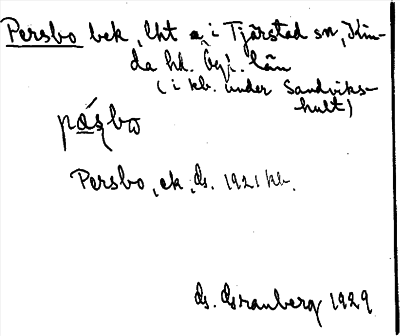 Persbo bek, lht a, i Tjärstad sn, Kin-
da hd. Ögl. län
( i kb. under Sandviks-
hult)
pásbω
Persbo, ek, ds. 1921 kb.
ds. Granberg 1929